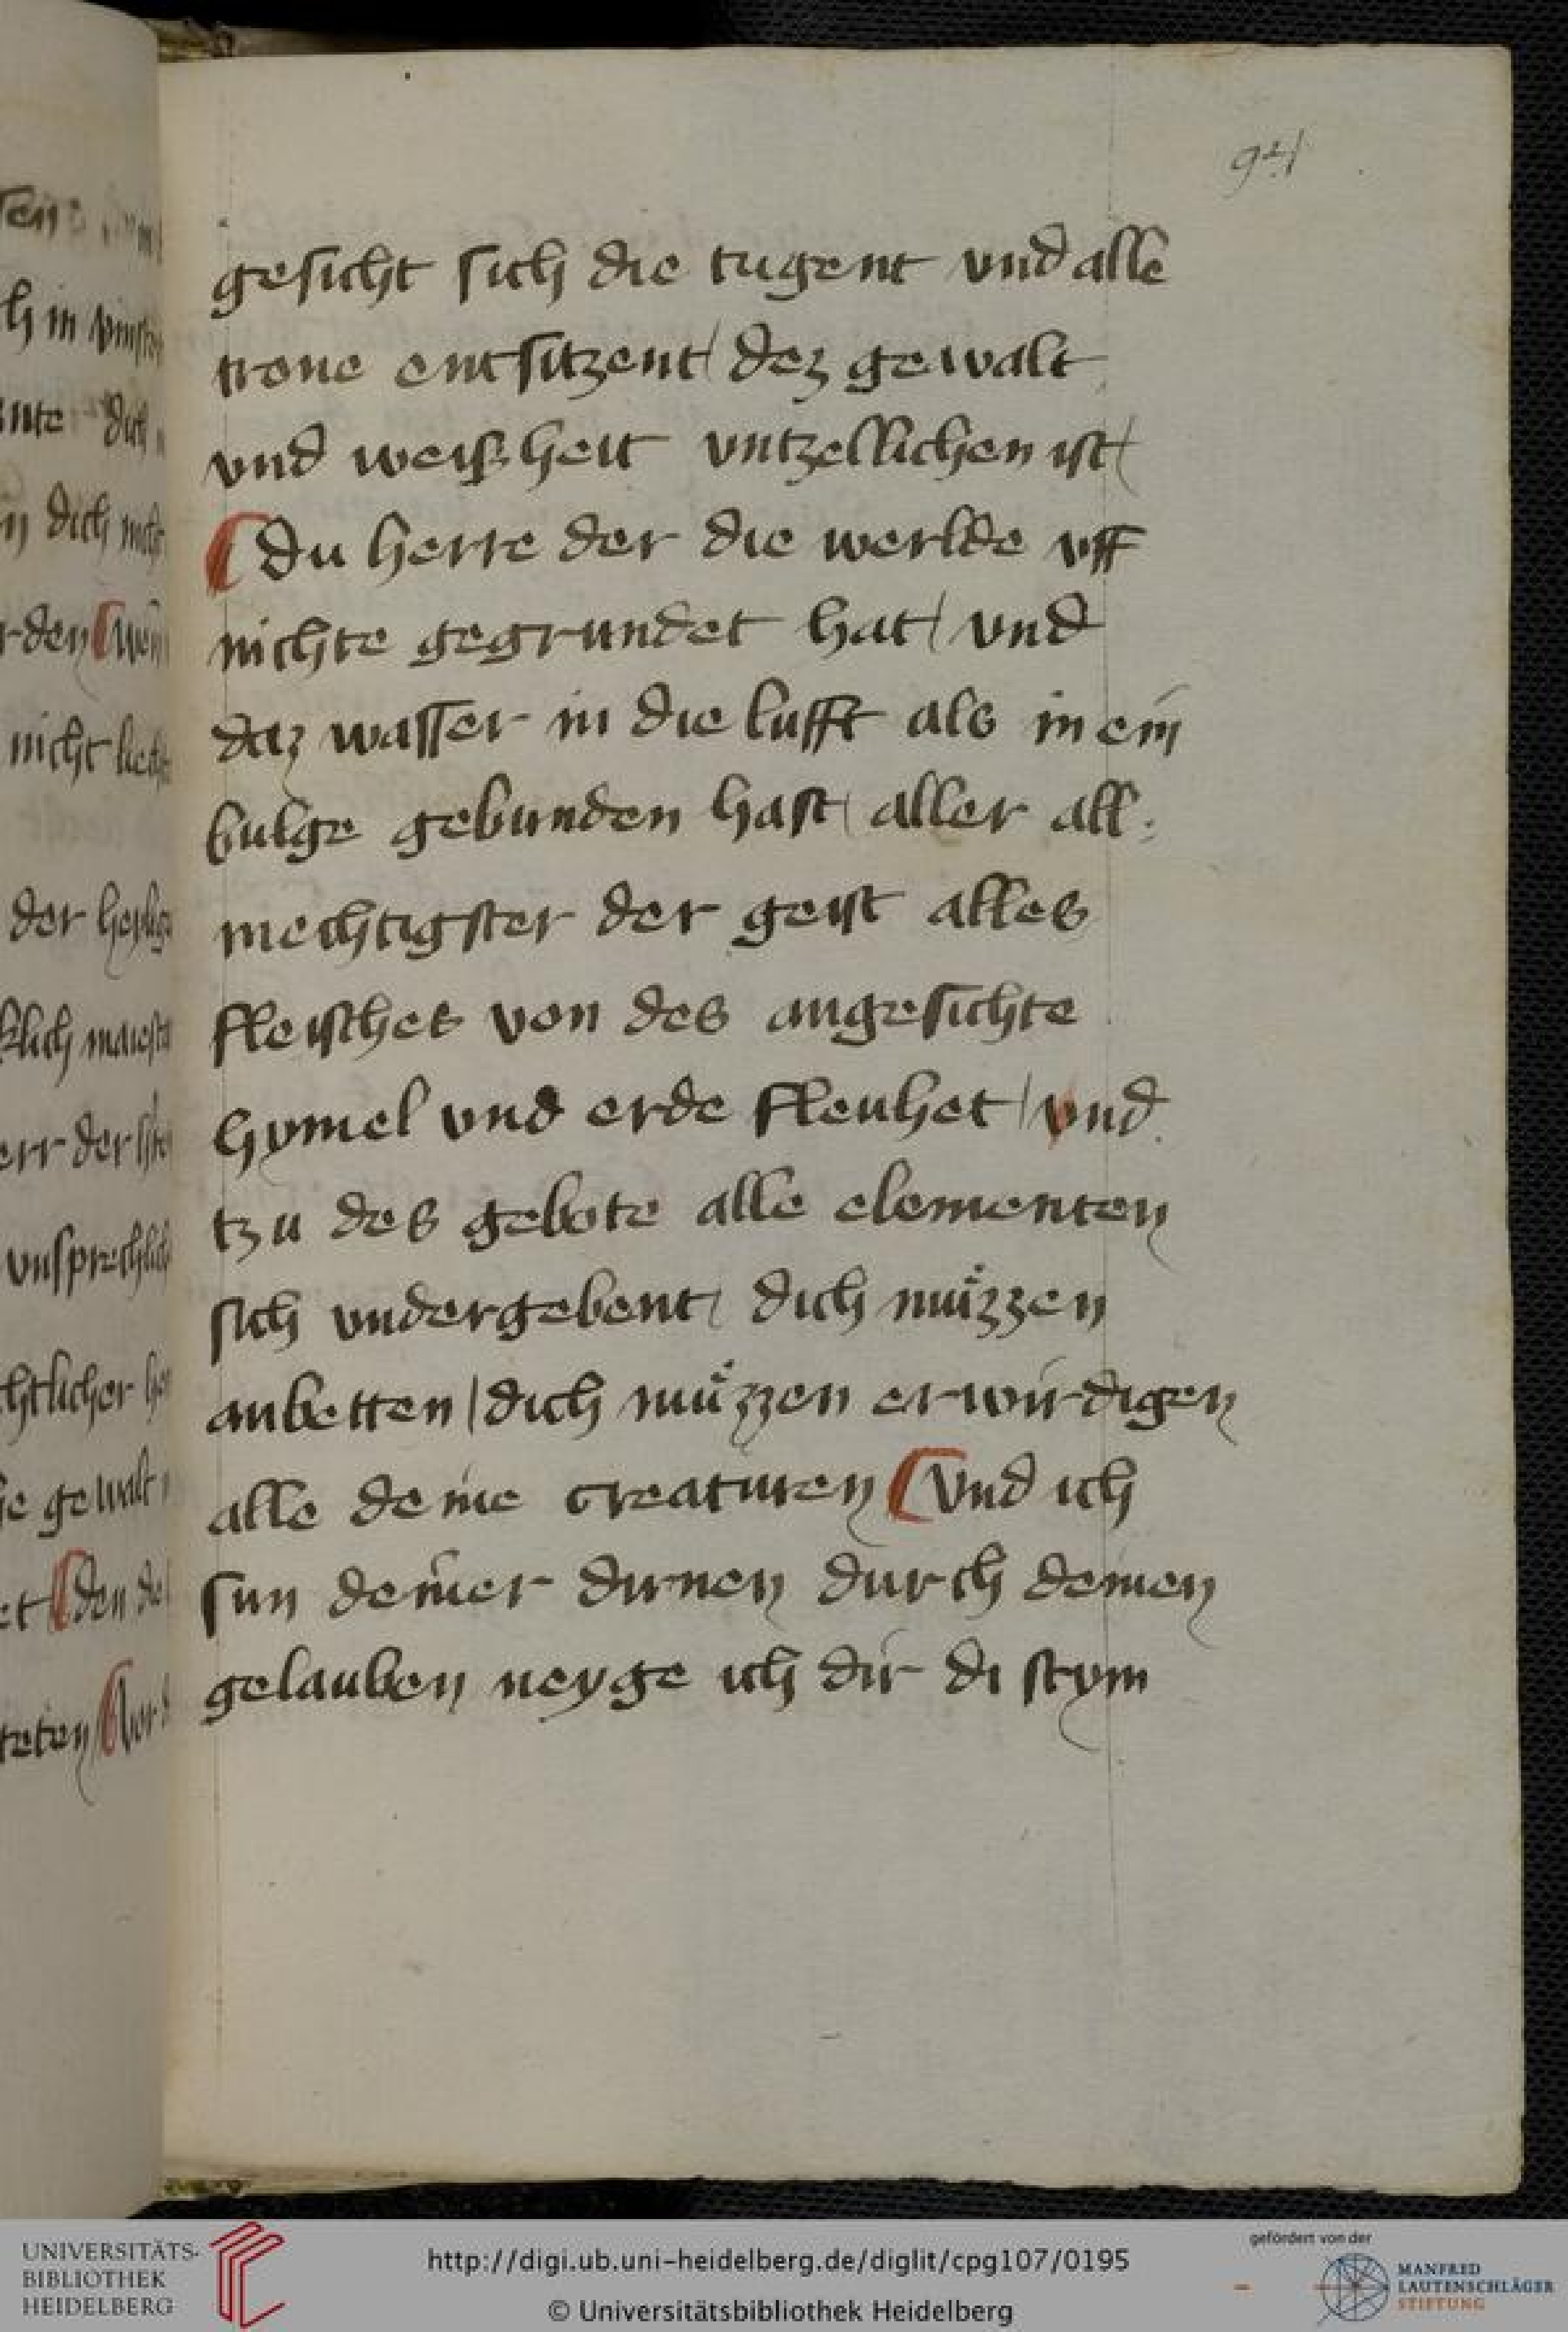 94
gesicht sich die tugent vnd alle
trone entsitzent / dez gewalt
vnd weißheit vntzellichen ist /
Du herre der die werlde vff
nichte gegrundet hat / vnd
daz wasser in die lufft als in ein
bulge gebunden hast / aller all:
mechtigster der geist alles
fleisches von des angesichte
hymel vnd erde fleuhet / vnd
tzu des gebote alle elementen
sich vndergebent / dich muͤzzen
anbetten / dich muͤzzen erwirdigen
alle deine creaturen Vnd ich
sun deiner dirnen durch deinen
gelauben neyge ich dir di stym
UNIVERSITÄTS-
BIBLIOTHEK
HEIDELBERG
http://digi.ub.uni-heidelberg.de/diglit/cpg107/0195
© Universitätsbibliothek Heidelberg
gefördert von der
MANFRED
LAUTENSCHLÄGER
STIFTUNG